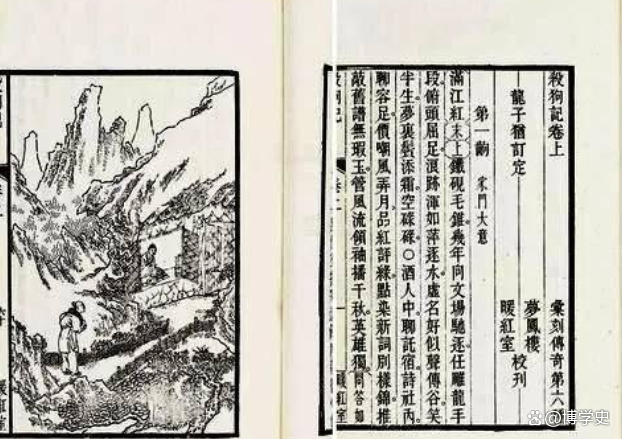 殺狗記卷上 彙刻傳奇第六
龍子猶訂定 夢鳳樓
暖紅室 校刊
第一齣 家門大意
滿江紅末上鐵硯毛錐幾年向文場馳逐任雕龍手
段俯頭屈足浪跡渾如萍逐水虛名好似聲傳谷笑
半生夢裏鬢添霜空碌碌○酒人中聊託宿詩社內
聊容足價嘲風弄月品紅評綠點染新詞別樣錦推
敲舊譜無瑕玉管風流領袖播千秋英雄獨問答如
一
暖紅室
暖紅室
博學史